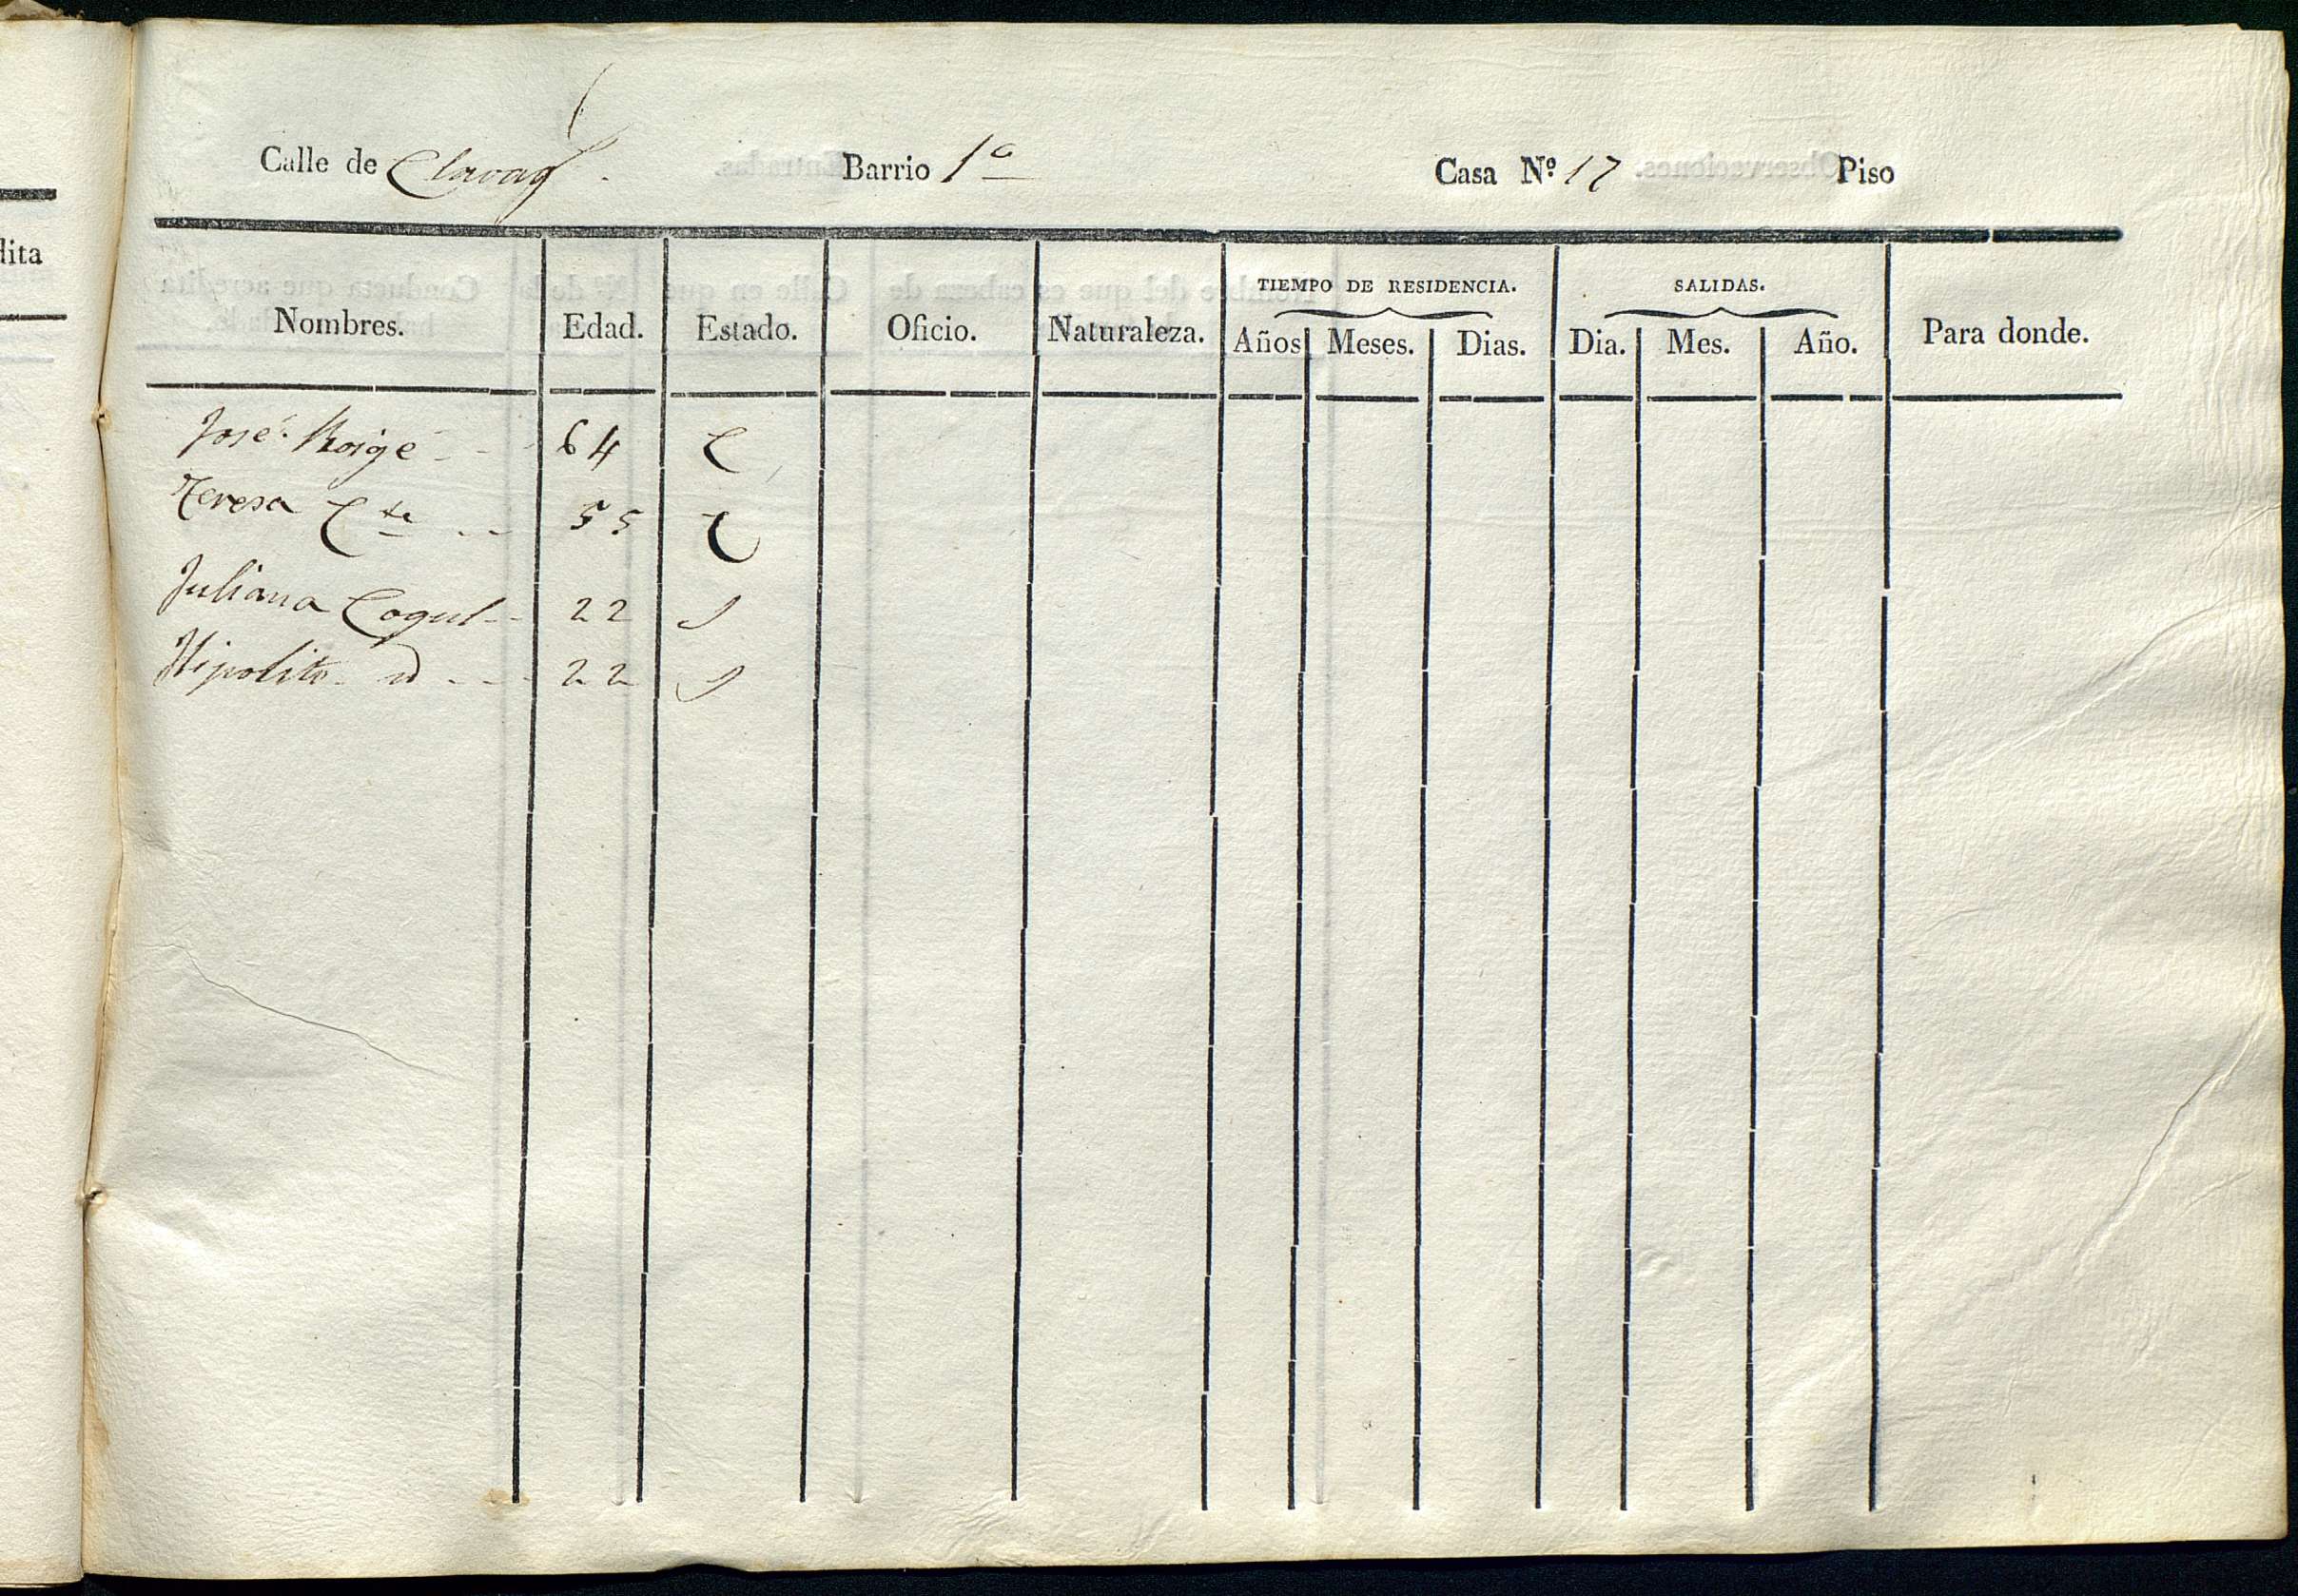 dita
Calle de Clavaq Barrio 1º Casa Nº 17 Piso
TIEMPO DE RESIDENCIA. SALIDAS.
Nombres. Edad. Estado. Oficio. Naturaleza. Años Meses. Dias. Dia. Mes. Año. Para donde.
José Roigé 64 C
Teresa C 55 C
Juliana Cogul 22 S
Hipolito id 22 S